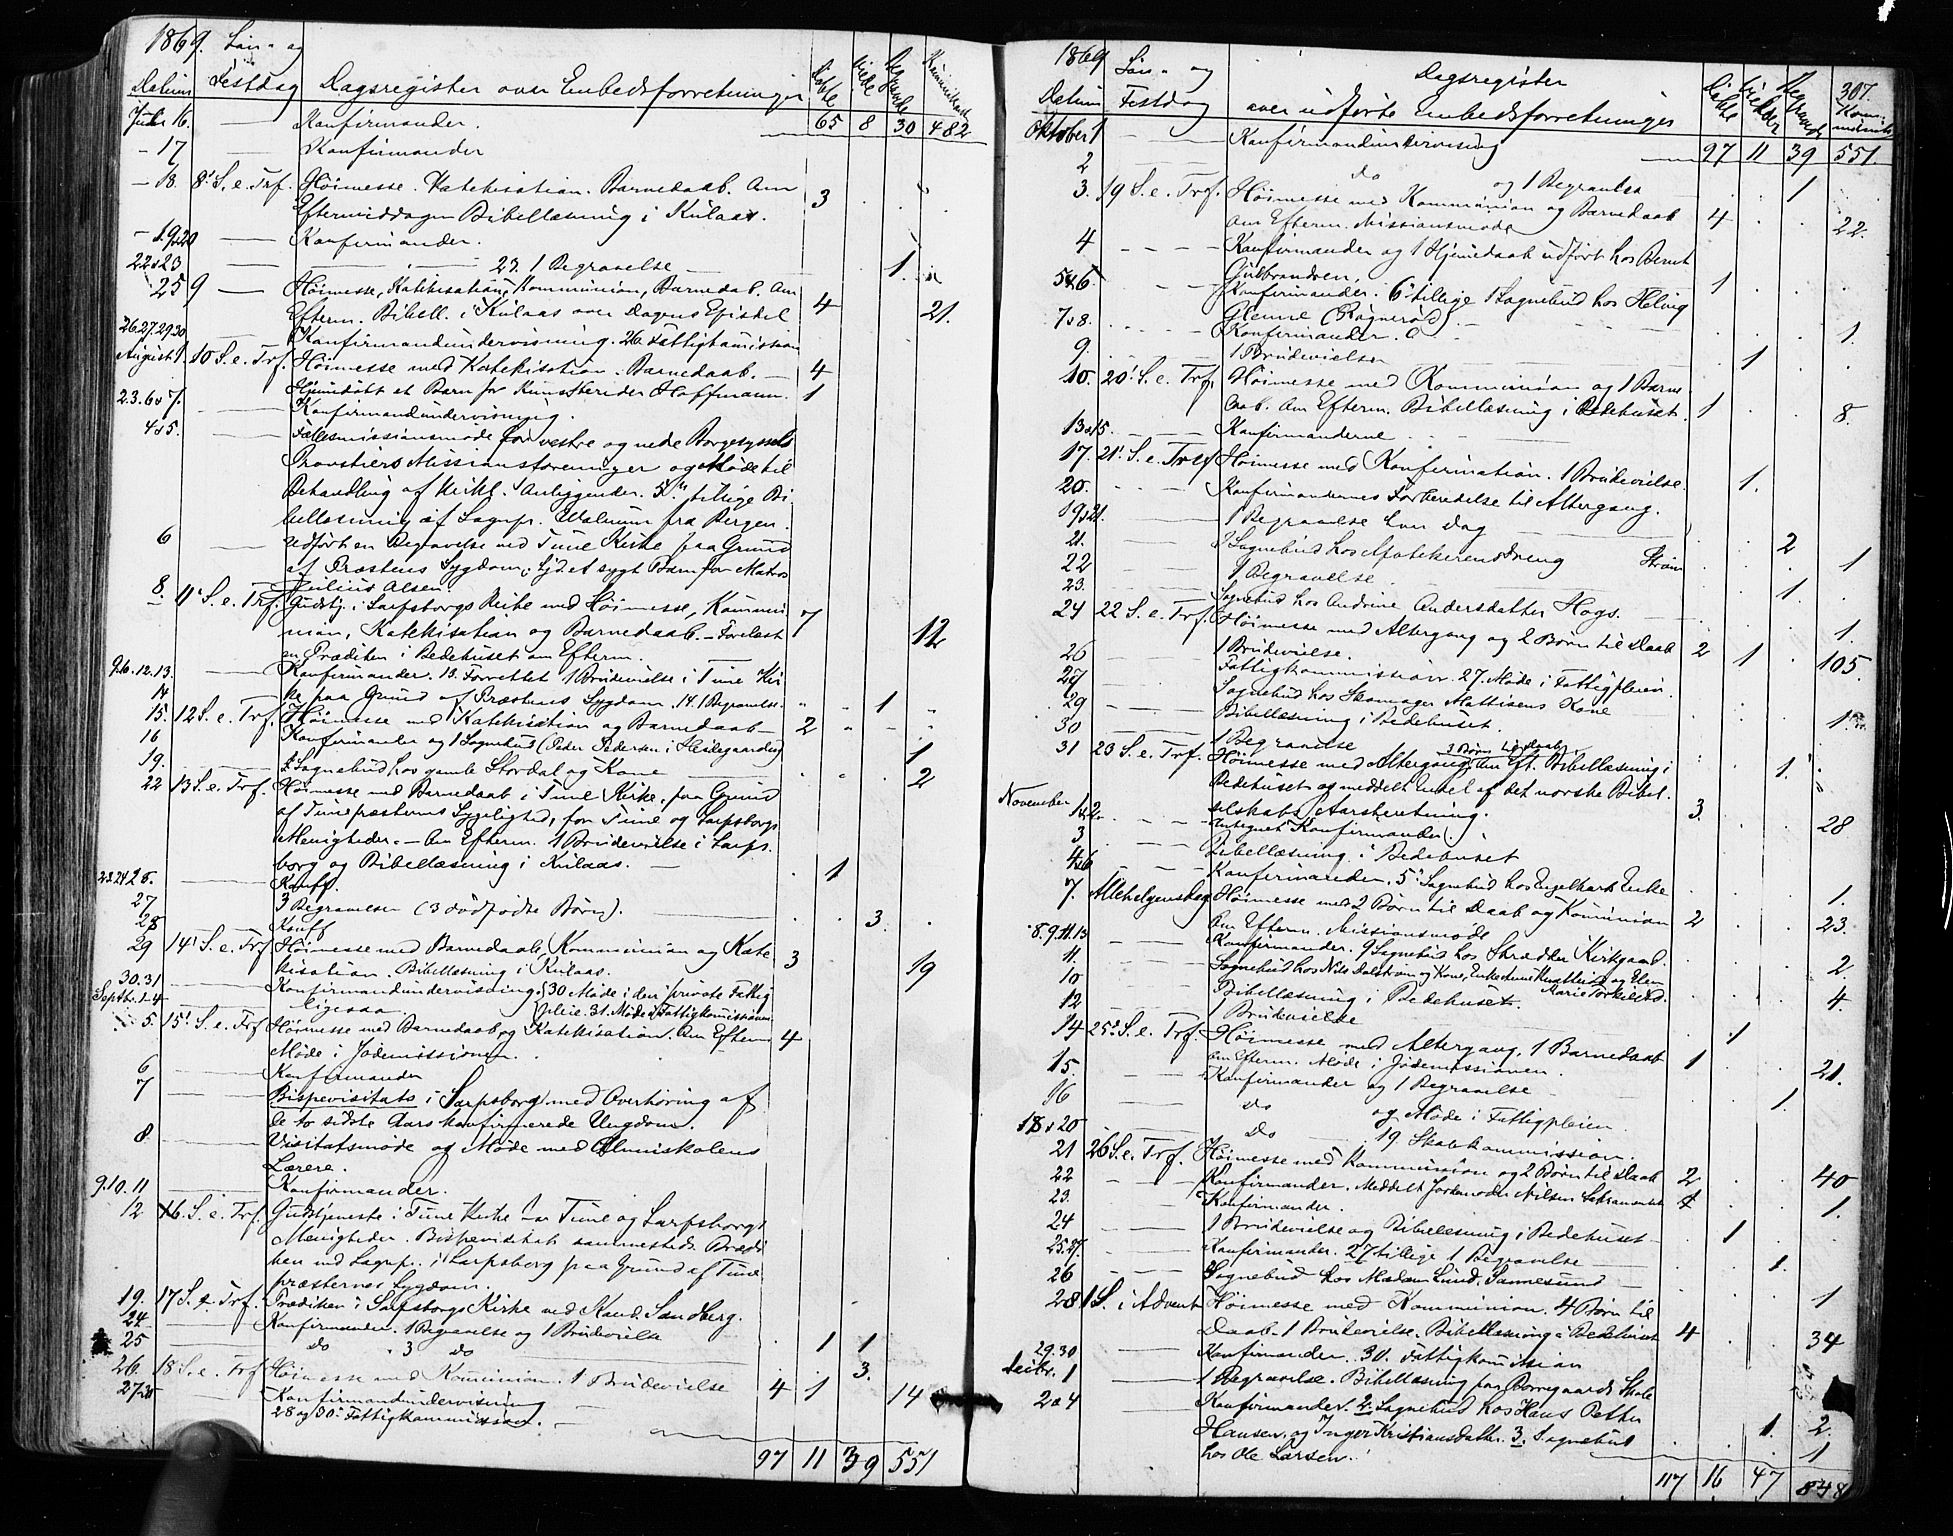 1869. Søn- og
Datum Festdag Dagsregister over Embedsforretninger Døbte Viede Begravede Kommunikanter
Juli 16. — Konfirmander. 65 8 30 482
- 17 — Konfirmander
- 18. 8' S. e. Trf. Høimesse. Katekisation. Barnedaab. Om 3
Eftermiddagen Bibellæsning i Kulaas.
- 19 20 — Konfirmander.
22 23 — 23. 1 Begravelse — 1.
25 9 — Høimesse, Katekisation, Kommunion, Barnedaab. Om 4 21.
Efterm. Bibell. i Kulaas over Dagens Epistel
26.27.29.30 Konfirmandundervisning. 26 Fattigkomission
August 1. 10 S. e. Trf. Høimesse med Katekisation. Barnedaab. — 4
Hjemmedøbt et Barn for Kunstberider Hoffmann. 1
2.3.6 7. — Konfirmandundervisning.
4 5. — Fællesmissionsmøde for vestre og nedre Borgesyssels
Provstiers Missionsforeninger og Møde til
Behandling af kirkl. Anliggender. 5. tillige Bi-
bellæsning af Sognepr. Walnum fra Bergen.
6 — Udført en Begravelse ved Tune Kirke paa Grund
af Præstens Sygdom;
Julius Olsen.
8. 11' S. e. Trf. Gudstj. i Sarpsborgs Kirke med Høimesse, Kommu- 7 12
nion, Katekisation og Barnedaab. — Forelæst
en Prædiken i Bedehuset om Efterm.
12.13. — Konfirmander. 13. Forrettet 1 Brudevielse i Tune Kir-
14 ke paa Grund af Præstens Sygdom. 14. 1 Begravelse. 1
15. 12 S. e. Trf. Høimesse med Katekisation og Barnedaab — 2
16 Konfirmander og 1 Sognebud (Peder Pedersen i ) 1
19. — 2 Sognebud hos gamle Stordal og Kone — 2
22 13 S. e. Trf. Høimesse med Barnedaab i Tune Kirke, paa Grund
af Tunepræsternes Sygelighed, for Tune og Sarpsborgs
Menigheder. — Om Efterm. 1 Brudevielse i Sarps-
borg og Bibellæsning i Kulaas. — 1
23 24 25. — Konf.
27 3 Begravelser (3 dødfødte Børn). — 3.
28 — Konf
29 14' S. e. Trf Høimesse med Barnedaab, Kommunion og Kate- 3 19
kisation. Bibellæsning i Kulaas.
30.31 — Konfirmandundervisning. 30 Møde i den private Fattig-
Septbr. 1-4 — ligesaa. pleie. 31. Møde i Fattigkomissionen
5. 15' S. e. Trf Høimesse med Barnedaab og Katekisation. Om Efterm 4
Møde i Jødemissionen.
6 — Konfirmander
7 — Bispevisitats i Sarpsborg med Overhøring af
de to sidste Aars konfirmerede Ungdom.
8 — Visitatsmøde og Møde med Almueskolens
Lærere.
9.10.11 — Konfirmander.
12 16. S. e. Trf. Gudstjeneste i Tune Kirke for Tune og Sarpsborgs
Menigheder. Bispevisitats sammesteds. Prædi-
ken ved Sognepr. i Sarpsborg paa Grund af Tune-
præsternes Sygdom.
19. 17 S. e. Trf. Prædiken i Sarpsborgs Kirke ved Kand. Sandberg.
24 — Konfirmander. 1 Begravelse og 1 Brudevielse 1 1
25 — do 3 do — 3.
26. 18 S. e. Trf Høimesse med Kommunion. 1 Brudevielse 4 1 14
27 30 — Konfirmandundervisning
28 og 30' Fattigkommission. —
97 11 39 551
1869 Søn- og Dagsregister 307.
Datum Festdag over udførte Embedsforretninger Døbte Viede Begravede Kommunik.
Oktober 1 — Konfirmandundervisning — 97 11 39 551
2 do og 1 Begravelse 1
3. 19 S. e. Trf. Høimesse med Kommunion og Barnedaab 4 22.
Om Efterm. Missionsmøde
4 — Konfirmander og 1 Hjemmedaab udført hos Bernt
Gulbrandsen. 1
5 & 6. — Konfirmander. 6' tillige 1 Sognebud hos Helvig
Glenne (Rognerød). 1.
7 8. Konfirmander.
9. 1 Brudevielse 1
10. 20' S. e. Trf. Høimesse med Kommunion og 1 Barne-
daab. Om Efterm. Bibellæsning i Bedehuset. 1 8.
13 15. Konfirmanderne
17. 21' S. e. Tref Høimesse med Konfirmation. 1 Brudevielse. 1.
20. Konfirmandernes Forberedelse til Altergang.
19 21. 1 Begravelse hver Dag — 2
21. Sognebud hos Apothekerens Dreng Strøm 1
22 1 Begravelse. 1
23. Sognebud hos Andrine Andersdatter Hogs. 1.
24 22 S. e. Trf. Høimesse med Altergang og 2 Børn til Daab 2 1 105.
1 Brudevielse.
26 Fattigkommission. 27. Møde i Fattigpleien.
27 Sognebud hos Skomager Mattisens Kone 1
29 Bibellæsning i Bedehuset.
30 1 Begravelse 1.
31 23 S. e. Trf. Høimesse med Altergang, 3 Børn til Daab. Om Eft. Bibellæsning i
Bedehuset og meddelt Uddel af det norske Bibel-
selskabs Aarsberetning. 3. 28
November 1 & 2. Konfirmander.
3 Bibellæsning i Bedehuset
4 & 6 — Konfirmander. 5' Sognebud hos Engelharts Enke 1.
7. Allehelgensdag Høimesse med 2 Børn til Daab og Komunion 2 23.
Om Efterm. Missionsmøde
8.9.11.13 — Konfirmander. 9 Sognebud hos Skrædder Kirkgaard. 2.
11. Sognebud hos Nils Dalstrøm og Kone, Marie Torkilsd. 4.
10 Bibellæsning i Bedehuset.
12 1 Brudevielse 1
14 25' S. e. Trf. Høimesse med Altergang, 1 Barnedaab 1 21.
Om Efterm. Møde i Jødemissionen.
15. Konfirmander og 1 Begravelse — 1.
16 — do og Møde i Fattigpleien.
18 20 — Do 19. Skolekommission.
21 26 S. e. Trf. Høimesse med Kommunion og 2 Børn til Daab 2 40
22 — Konfirmander. Meddelt Jordemoder Nilsen Sakramentet 1.
23. — Konfirmander.
24 — 1 Brudevielse og Bibellæsning i Bedehuset — 1
25.27. — Konfirmander. 27 tillige 1 Begravelse — 1.
26 — Sognebud hos Madam Lund, Sannesund — 1
28. 1 S. i Advent Høimesse med Kommunion. 4 Børn til
Daab. 1 Brudevielse. Bibellæsning i Bedehuset 4 34
29.30 — Konfirmander. 30. Fattigkomission
Decbr. 1 — 1 Begravelse. Bibellæsning paa Borregaards Skole
2 4 — Konfirmander. 2. Sognebud hos Hans Petter
Hansen, og Inger Kristiansdatter. 3. Sognebud 1. 2.
hos Ole Larsen. 1
117 16 47 848